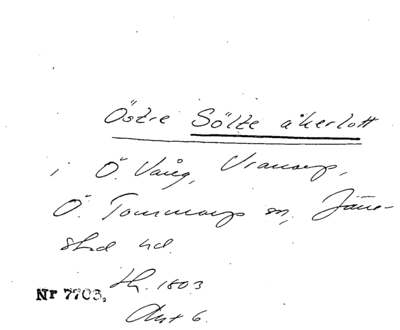 Östre Sölte åkerlott
i Ö. Vång, Vranarp,
Ö. Tommarp sn, Järre-
stad hd.
Nr 7703. Lh. 1803
Akt 6.